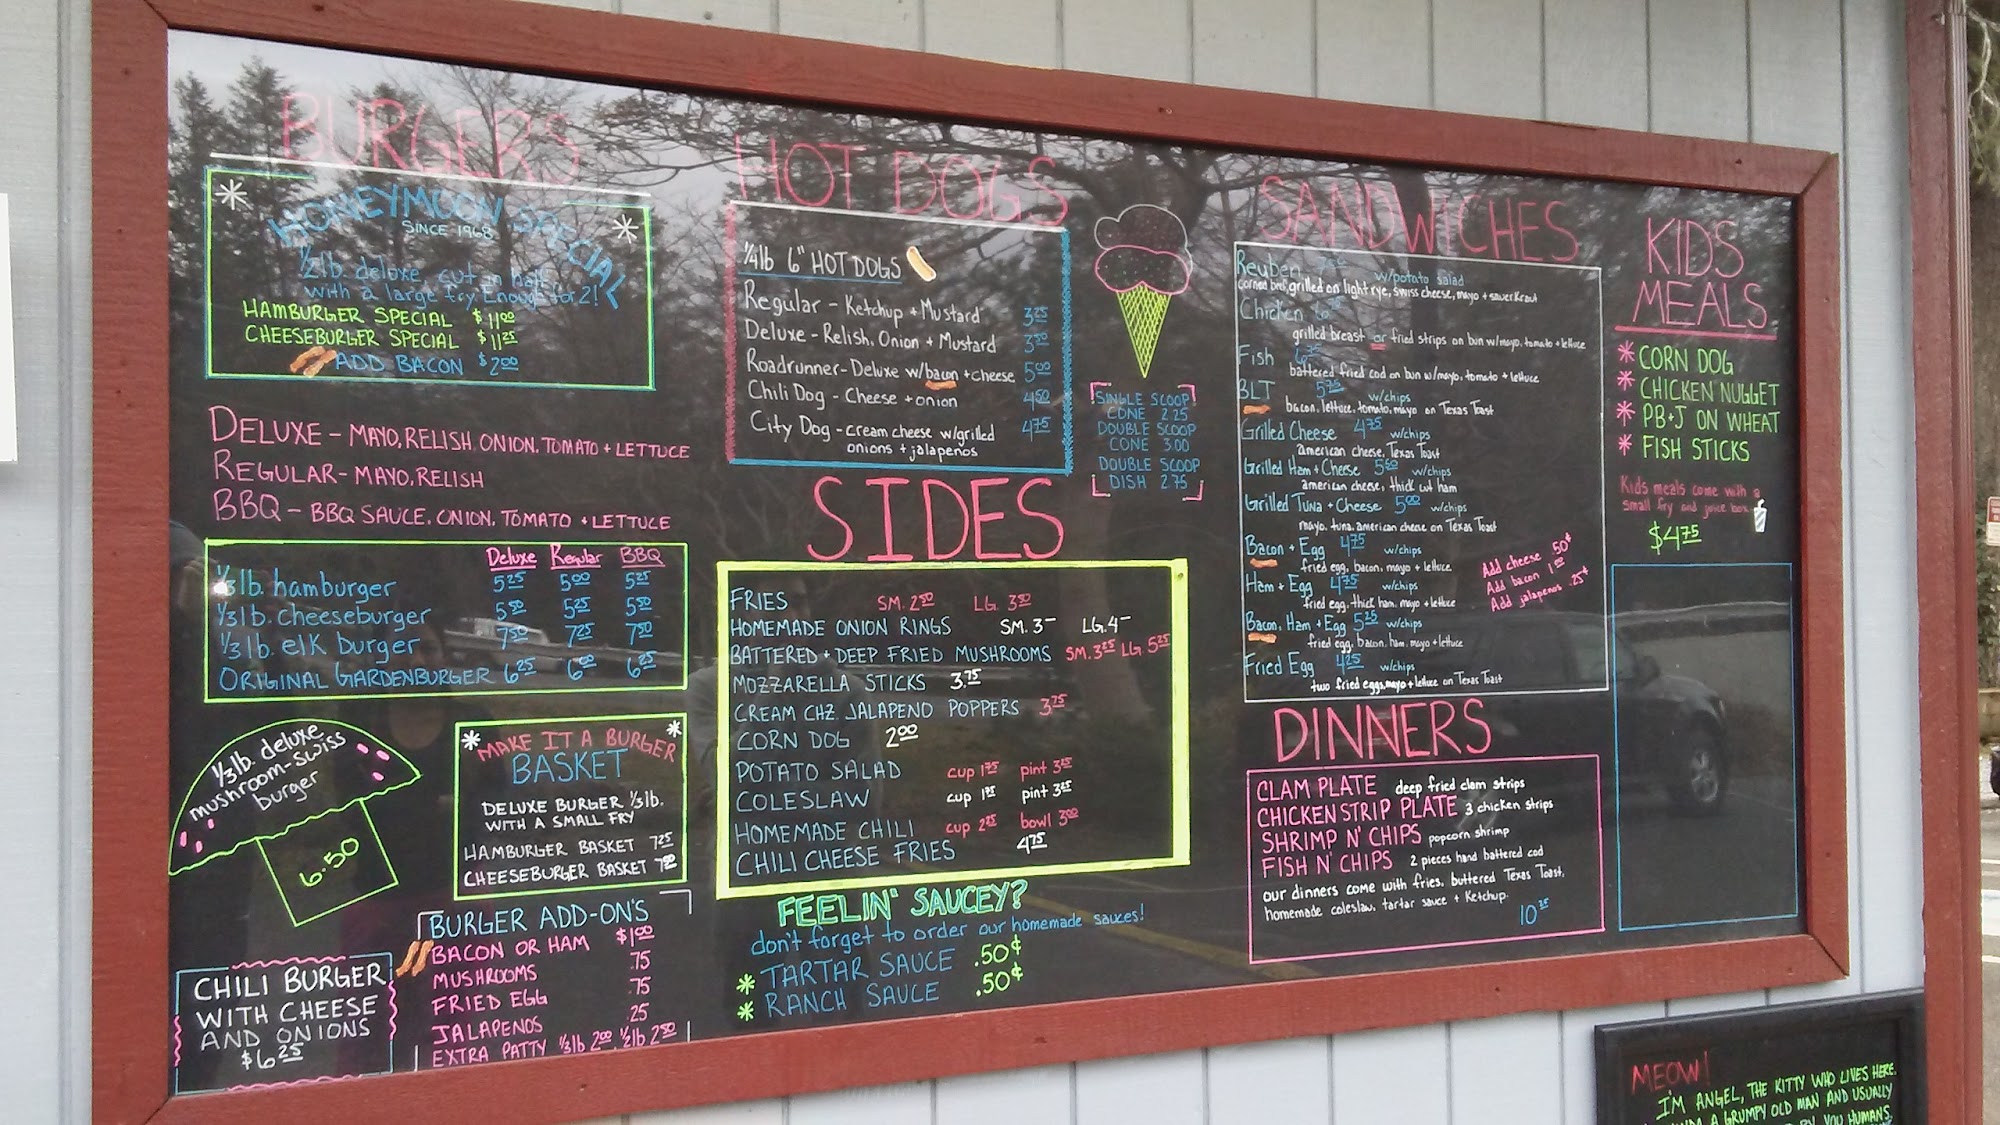 BURGERS
HONEYMOON SPECIAL
SINCE 1968
1/2 lb. deluxe, cut in half
with a large fry. Enough for 2!
HAMBURGER SPECIAL $11.00
CHEESEBURGER SPECIAL $11.25
ADD BACON $2.00
DELUXE - MAYO, RELISH, ONION, TOMATO + LETTUCE
REGULAR - MAYO, RELISH
BBQ - BBQ SAUCE, ONION, TOMATO + LETTUCE
Deluxe Regular BBQ
1/3 lb. hamburger 5.25 5.00 5.25
1/3 lb. cheeseburger 5.50 5.25 5.50
1/3 lb. elk burger 7.50 7.25 7.50
ORIGINAL GARDENBURGER 6.25 6.00 6.25
1/3 lb. deluxe
mushroom-swiss
burger
6.50
MAKE IT A BURGER
BASKET
DELUXE BURGER 1/3 lb.
WITH A SMALL FRY
HAMBURGER BASKET 7.25
CHEESEBURGER BASKET 7.50
CHILI BURGER
WITH CHEESE
AND ONIONS
$6.25
BURGER ADD-ON'S
BACON OR HAM $1.00
MUSHROOMS .75
FRIED EGG .75
JALAPENOS .25
EXTRA PATTY 1/3 lb 2.00 1/2 lb 2.50
HOT DOGS
1/4 lb 6" HOT DOGS
Regular - Ketchup + Mustard 3.25
Deluxe - Relish, Onion + Mustard 3.50
Roadrunner - Deluxe w/bacon + cheese 5.00
Chili Dog - Cheese + onion 4.50
City Dog - cream cheese w/grilled 4.75
onions + jalapenos
SINGLE SCOOP
CONE 2.25
DOUBLE SCOOP
CONE 3.00
DOUBLE SCOOP
DISH 2.75
SIDES
FRIES SM. 2.50 LG. 3.50
HOMEMADE ONION RINGS SM. 3- LG. 4-
BATTERED + DEEP FRIED MUSHROOMS SM. 3.25 LG. 5.25
MOZZARELLA STICKS 3.75
CREAM CHZ. JALAPENO POPPERS 3.75
CORN DOG 2.00
POTATO SALAD cup 1.75 pint 3.25
COLESLAW cup 1.75 pint 3.25
HOMEMADE CHILI cup 2.25 bowl 3.00
CHILI CHEESE FRIES 4.75
FEELIN' SAUCEY?
don't forget to order our homemade sauces!
* TARTAR SAUCE .50¢
* RANCH SAUCE .50¢
SANDWICHES
Reuben w/potato salad
corned beef, grilled on light rye, swiss cheese, mayo + sauerkraut
Chicken
grilled breast or fried strips on bun w/mayo, tomato + lettuce
Fish 6.75
battered fried cod on bun w/mayo, tomato + lettuce
BLT 5.75 w/chips
bacon, lettuce, tomato, mayo on Texas Toast
Grilled Cheese 4.75 w/chips
american cheese, Texas Toast
Grilled Ham + Cheese 5.50 w/chips
american cheese, thick cut ham
Grilled Tuna + Cheese 5.00 w/chips
mayo, tuna, american cheese on Texas Toast
Bacon + Egg 4.75 w/chips
fried egg, bacon, mayo + lettuce
Ham + Egg 4.75 w/chips
fried egg, thick ham, mayo + lettuce
Bacon, Ham + Egg 5.25 w/chips
fried egg, bacon, ham, mayo + lettuce
Fried Egg 4.25 w/chips
two fried eggs, mayo + lettuce on Texas Toast
Add cheese .50¢
Add bacon 1.00
Add jalapenos .25¢
DINNERS
CLAM PLATE deep fried clam strips
CHICKEN STRIP PLATE 3 chicken strips
SHRIMP N' CHIPS popcorn shrimp
FISH N' CHIPS 2 pieces hand battered cod
our dinners come with fries, buttered Texas Toast,
homemade coleslaw, tartar sauce + Ketchup.
10.25
KIDS
MEALS
* CORN DOG
* CHICKEN NUGGET
* PB+J ON WHEAT
* FISH STICKS
Kids meals come with a
small fry and juice box.
$4.75
MEOW!
I'M ANGEL, THE KITTY WHO LIVES HERE.
A GRUMPY OLD MAN AND USUALLY
BY YOU HUMANS,